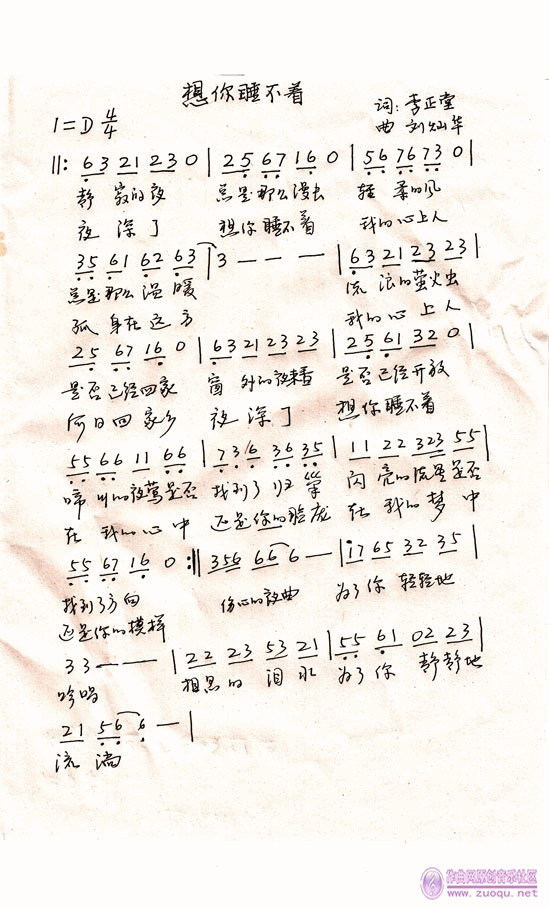 想你睡不着
1=D 4/4
词：李正堂
曲 刘灿华
‖: 63 21 23 0 | 25 67 16 0 | 56 76 73 0 |
静 寂的夜 总是那么漫长 轻 柔的风
夜 深了 想你睡不着 我的心上人
35 61 62 63 | 3 — — — | 63 21 23 23 |
总是那么温暖 流 浪的萤火虫
孤 身在远方 我的心上人
25 67 16 0 | 63 21 23 23 | 25 61 32 0 |
是否已经回家 窗 外的夜来香 是否已经开放
何日回家乡 夜 深了 想你睡不着
55 66 11 66 | 736 36 35 | 11 22 323 55 |
啼 叫的夜莺是否 找到了归巢 闪 亮的流星是否
在 我的心中 还是你的脸庞 在 我的梦中
55 67 16 0 :‖ 356 66 6 — | 17 65 32 35 |
找到了方向 伤心的夜曲 为了你 轻轻地
还是你的模样
33 — — — | 22 23 53 21 | 55 61 02 23 |
吟唱 相思的 泪水 为了你 静静地
21 56 6 — |
流 淌
作曲网原创音乐社区
www.zuoqu.net